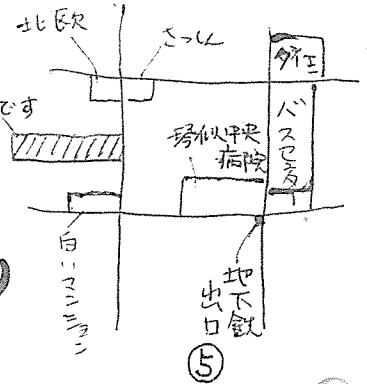 北欧
さっしん
ダイエー
です
琴似中央
病院
バスセンター
白いマンション
地下鉄
出口
⑤